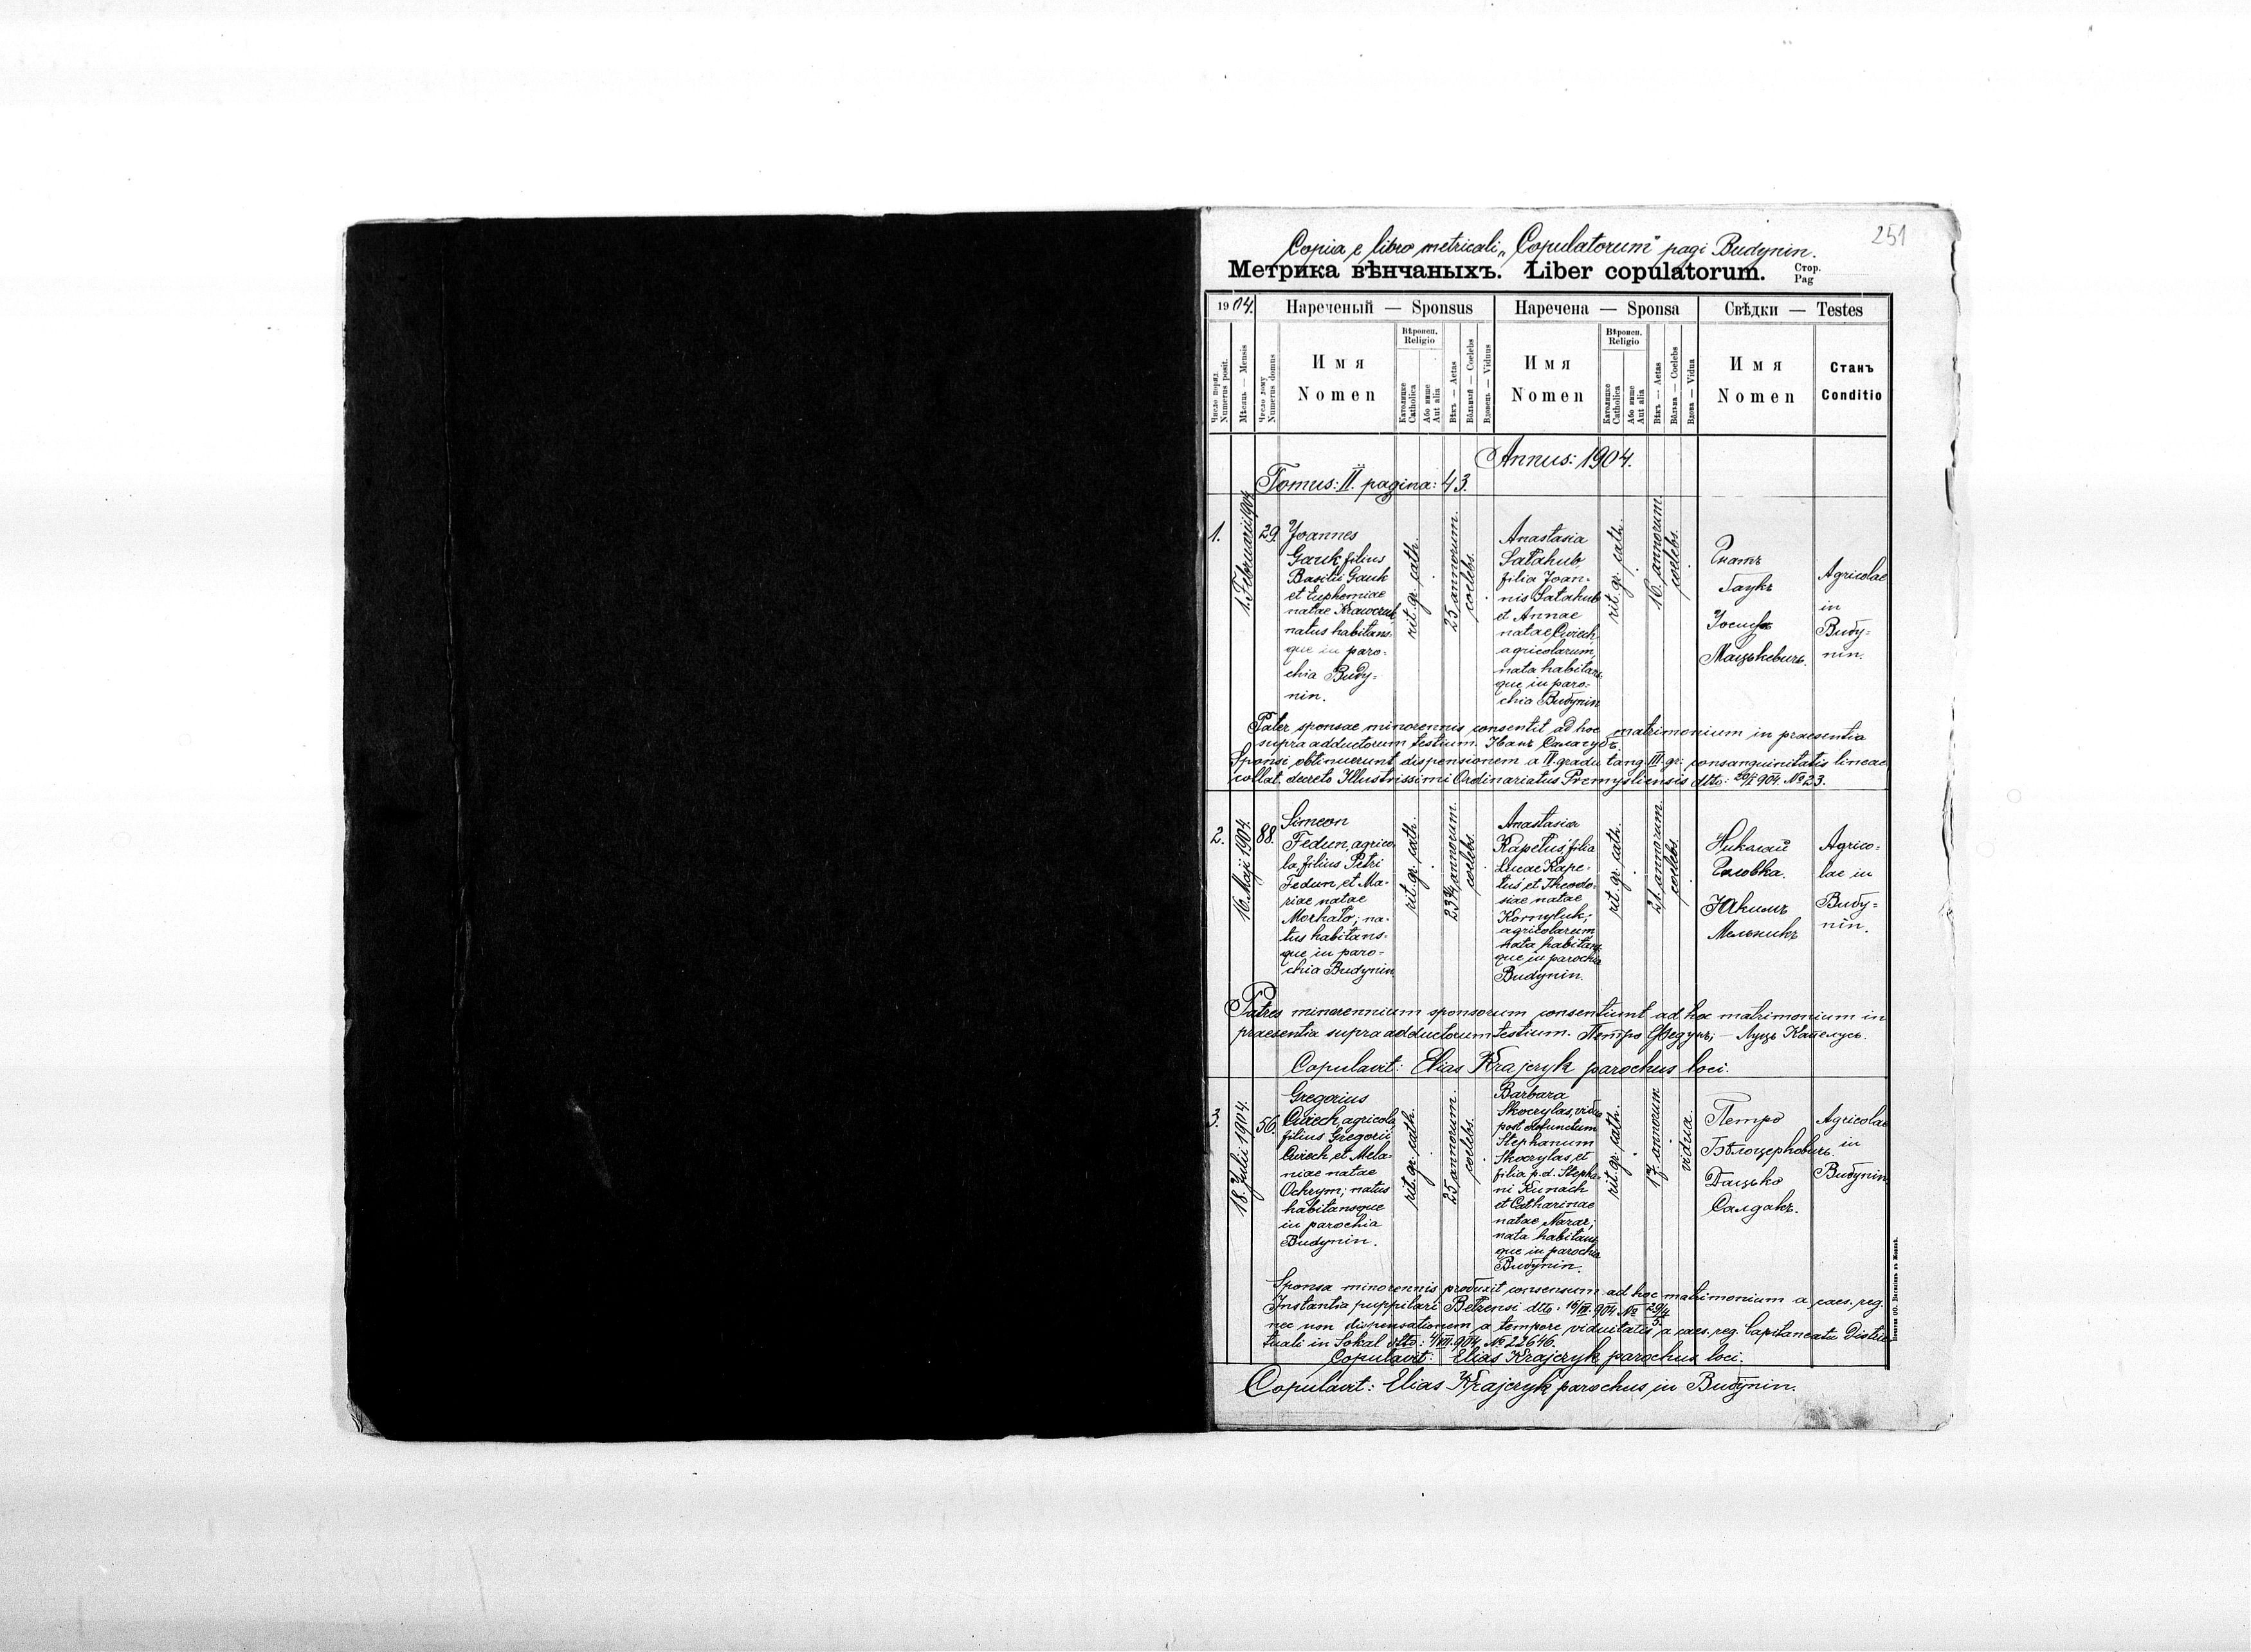 251
Copia e libro metricali „Copulatorum" pagi Budynin.
Метрика вѣнчаныхъ. Liber copulatorum.
Стор.
Pag
1904.
Нареченый — Sponsus
Наречена — Sponsa
Свѣдки — Testes
Число поряд.
Numerus posit.
Мѣсяць — Mensis
Число дому
Numerus domus
Имя
Nomen
Вѣроисп.
Religio
Католицке
Catholica
Або инше
Aut alia
Вѣкъ — Aetas
Вôльный — Coelebs
Вдовець — Viduus
Имя
Nomen
Вѣроисп.
Religio
Католицке
Catholica
Або инше
Aut alia
Вѣкъ — Aetas
Вôльна — Coelebs
Вдова — Vidua
Имя
Nomen
Станъ
Conditio
Annus: 1904.
Tomus: II. pagina: 43.
1.
1. Februarii 1904
29
Joannes
Gauk filius
Basilii Gauk
et Euphemiae
natae
natus habitans-
que in paro-
chia Budy-
nin.
rit. gr. cath.
25 annorum.
coelebs.
Anastasia
Satahub
filia Joan-
nis Satahub
et Annae
natae Cwiech
agricolarum,
nata habitans
que in paro-
chia Budynin
rit. gr. cath.
16 annorum
coelebs.
Гнатъ
Гаукъ
Іосифъ
Мацькевичъ.
Agricolae
in
Budy-
nin.
Pater sponsae minorennis consentit ad hoc matrimonium in praesentia
supra adductorum testium. Иванъ Салагубъ.
Sponsi obtinuerunt dispensionem a II. gradu tang. III. gr. consanguinitatis lineae
collat. decreto Illustrissimi Ordinariatus Premysliensis dtto: 904. № 23.
2.
16. Maji 1904.
88.
Simeon
Fedun, agrico
la, filius Petri
Fedun et Ma-
riae natae
Morhato; na-
tus habitans-
que in paro-
chia Budynin
rit. gr. cath.
23¾ annorum.
coelebs.
Anastasia
Kapelus, filia
Lucae Kape-
lus et Theodo-
siae natae
Kornyluk;
agricolarum
nata habitans
que in parochia
Budynin.
rit. gr. cath.
21. annorum.
coelebs.
Николай
Головка.
Якимъ
Мельникъ
Agrico-
lae in
Budy-
nin.
Patres minorennium sponsorum consentiunt ad hoc matrimonium in
praesentia supra adductorum testium. Петро Федунъ; — Луць Капелусь.
Copulavit: Elias Krajczyk parochus loci.
3.
18. Julii 1904.
56.
Gregorius
Cwiech, agricola
filius Gregorii
Cwiech et Mela-
niae natae
Ochrym; natus
habitansque
in parochia
Budynin.
rit. gr. cath.
25 annorum.
coelebs.
Barbara
Skocylas, vidua
post defunctum
Stephanum
Skocylas, et
filia p.d. Stepha-
ni Kunach
et Catharinae
natae Nazar;
nata habitans
que in parochia
Budynin.
rit. gr. cath.
17. annorum
vidua.
Петро
Бѣлоцерковичъ.
Дацько
Салдакъ.
Agricolae
in
Budynin
Sponsa minorennis produxit consensum ad hoc matrimonium a caes. reg.
Instantia puppilari Belzensi dtto. 16/VII. 904 №
nec non dispensationem a tempore viduitatis a caes. reg. Capitaneatu Distric
tuali in Sokal dtto: 904. № 22646.
Copulavit: Elias Krajczyk parochus loci.
Copulavit: Elias Krajczyk parochus in Budynin.